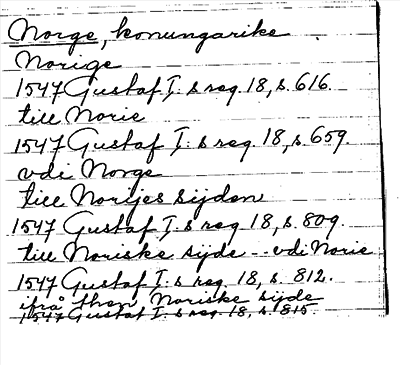 Norge, konungarike
Norige
1547 Gustaf I:s reg. 18, s. 616.
till Norie
1547 Gustaf I:s reg. 18, s. 659.
vdi Norge
till Noriges sijden
1547 Gustaf I:s reg. 18, s. 809.
till Noriske sijde - - vdi Norie
1547 Gustaf I:s reg. 18, s. 812.
ifrå then Noriske sijde
1547 Gustaf I:s reg. 18, s. 815.